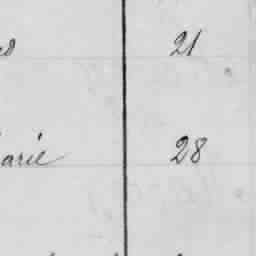 21
arie 28